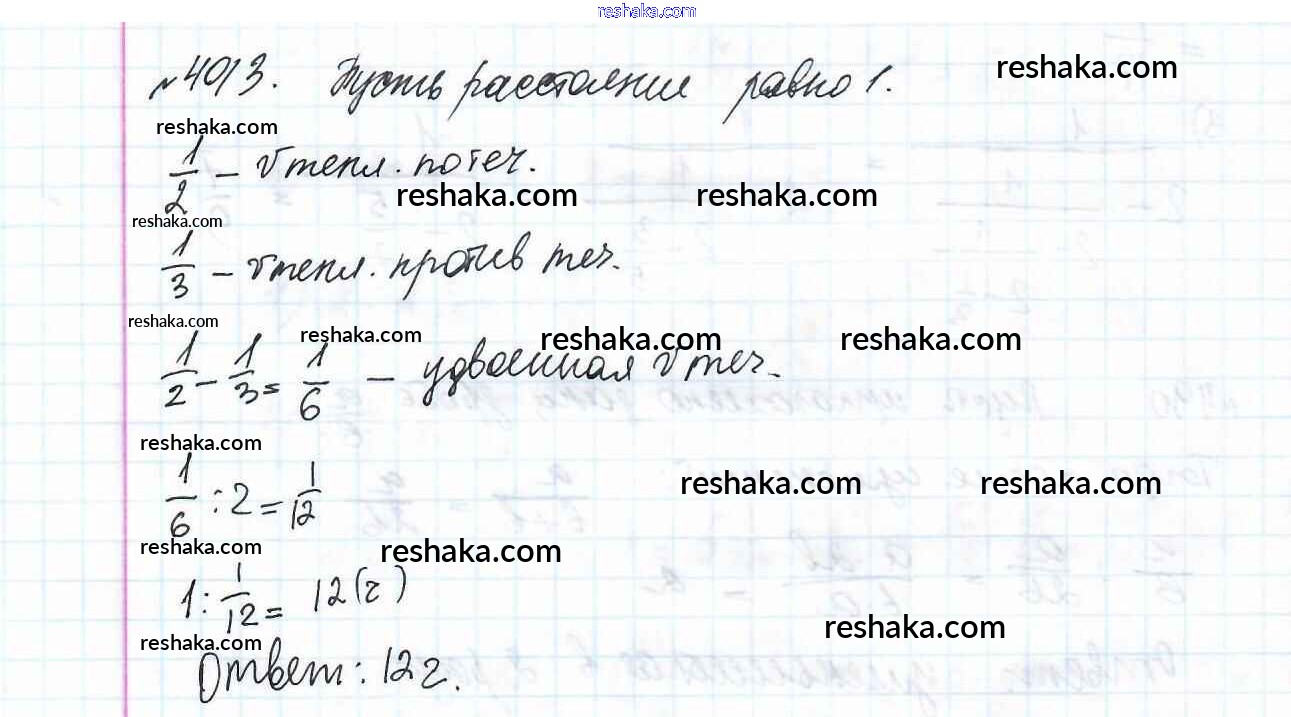 reshaka.com
№4013. Пусть расстояние равно 1.
reshaka.com
reshaka.com
1/2 – v тепл. по теч.
reshaka.com reshaka.com
reshaka.com
1/3 – v тепл. против теч.
reshaka.com
reshaka.com reshaka.com reshaka.com
1/2 – 1/3 = 1/6 – удвоенная v теч.
reshaka.com
1/6 : 2 = 1/12
reshaka.com reshaka.com
reshaka.com reshaka.com
1 : 1/12 = 12 (г)
reshaka.com
reshaka.com
Ответ: 12 г.